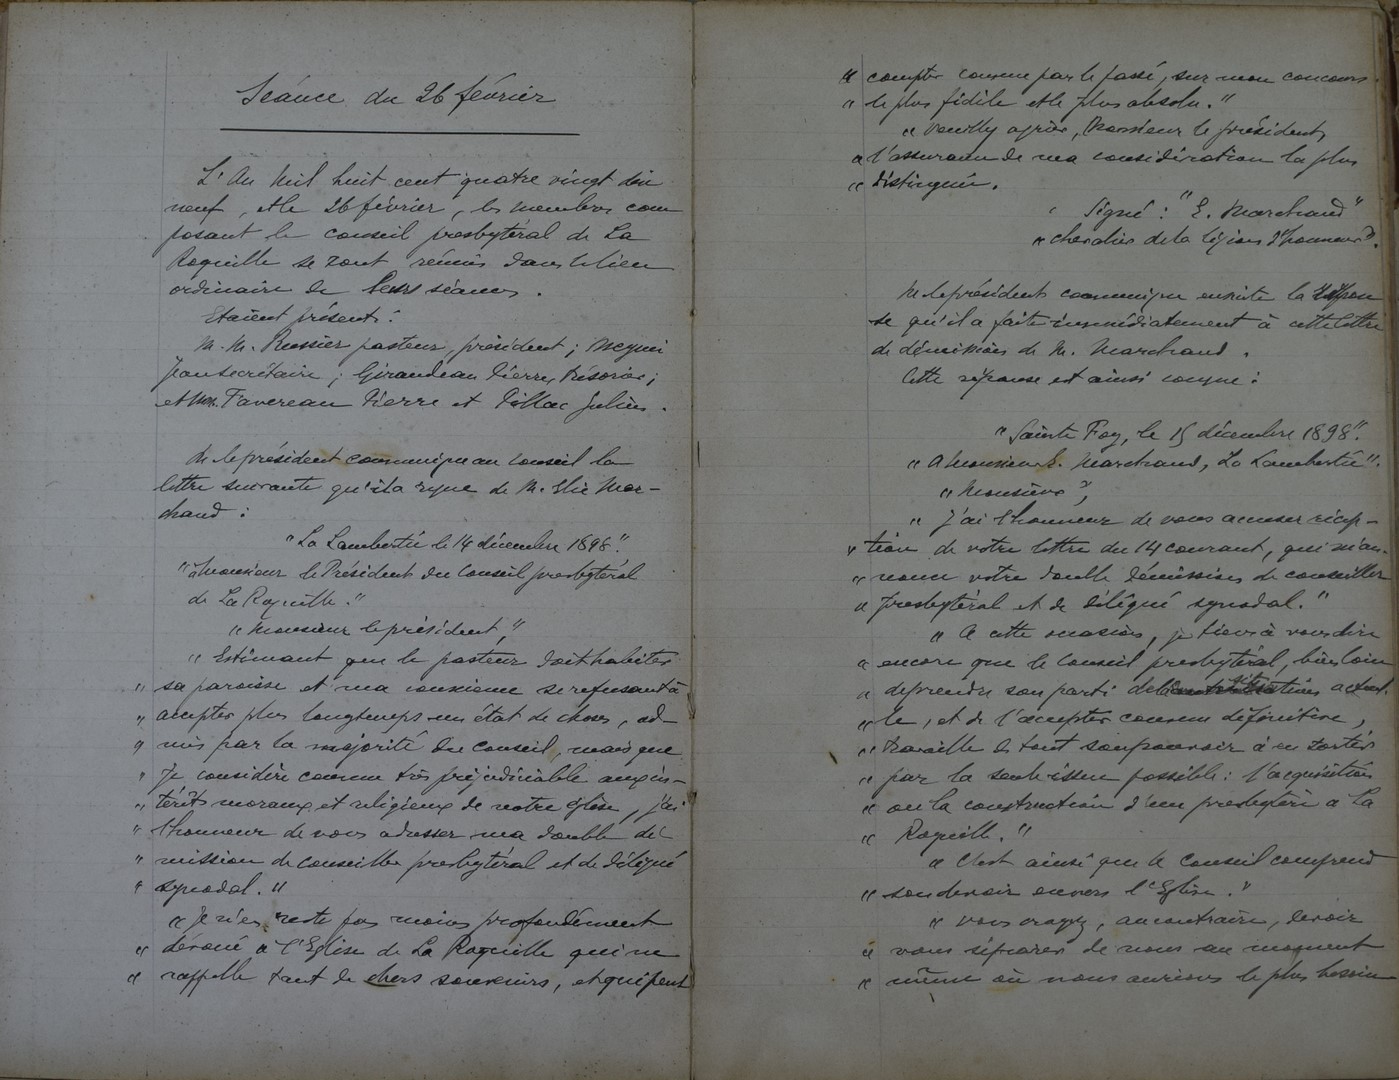 Séance du 26 février
L'An Mil huit cent quatre vingt dix
neuf, et le 26 février, les membres com
posant le conseil presbytéral de La
Roquille se sont réunis dans le lieu
ordinaire de leurs séances.
Etaient présents:
M. M. Russier pasteur, président; Meynei
Jean secrétaire; Girandeau Pierre, trésorier;
et MM. Favereau Pierre et Dillac Julien.
M. le président communique au conseil la
lettre suivante qu'il a reçue de M. Elie Mar-
chand:
"La Lambertie le 14 décembre 1898".
"à Monsieur le Président du Conseil presbytéral
de La Roquille."
"Monsieur le président,"
"Estimant que le pasteur doit habiter
" sa paroisse et ma conscience se refusant à
" accepter plus longtemps un état de choses, ad-
" mis par la majorité du conseil, mais que
" je considère comme très préjudiciable aux in-
" térêts moraux et religieux de notre église, j'ai
" l'honneur de vous adresser ma double dé-
" mission de conseiller presbytéral et de délégué
" synodal."
" Je n'en reste pas moins profondément
" dévoué à l'Eglise de La Roquille qui me
" rappelle tant de chers souvenirs, et qui peut
" compter comme par le passé, sur mon concours
" le plus fidèle et le plus absolu."
" Veuillez agréer, Monsieur le président,
" l'assurance de ma considération la plus
" distinguée.
Signé: "E. Marchand"
"chevalier de la légion d'honneur".
M. le président communique ensuite la répon
se qu'il a faite immédiatement à cette lettre
de démission de M. Marchand.
Cette réponse est ainsi conçue:
"Sainte Foy, le 15 décembre 1898".
"A Monsieur E. Marchand, La Lambertie".
"Monsieur",
" J'ai l'honneur de vous accuser récep-
" tion de votre lettre du 14 courant, qui m'an-
" nonce votre double démission de conseiller
" presbytéral et de délégué synodal."
" A cette occasion, je tiens à vous dire
" encore que le conseil presbytéral, bien loin
" de prendre son parti de la situation actuel
" le, et de l'accepter comme définitive,
" travaille de tout son pouvoir à en sortir
" par la seule issue possible: l'acquisition
" ou la construction d'un presbytère à La
" Roquille."
" C'est ainsi que le Conseil comprend
" son devoir envers l'Eglise."
" Vous croyez, au contraire, devoir
" vous séparer de nous au moment
" même où nous aurions le plus besoin